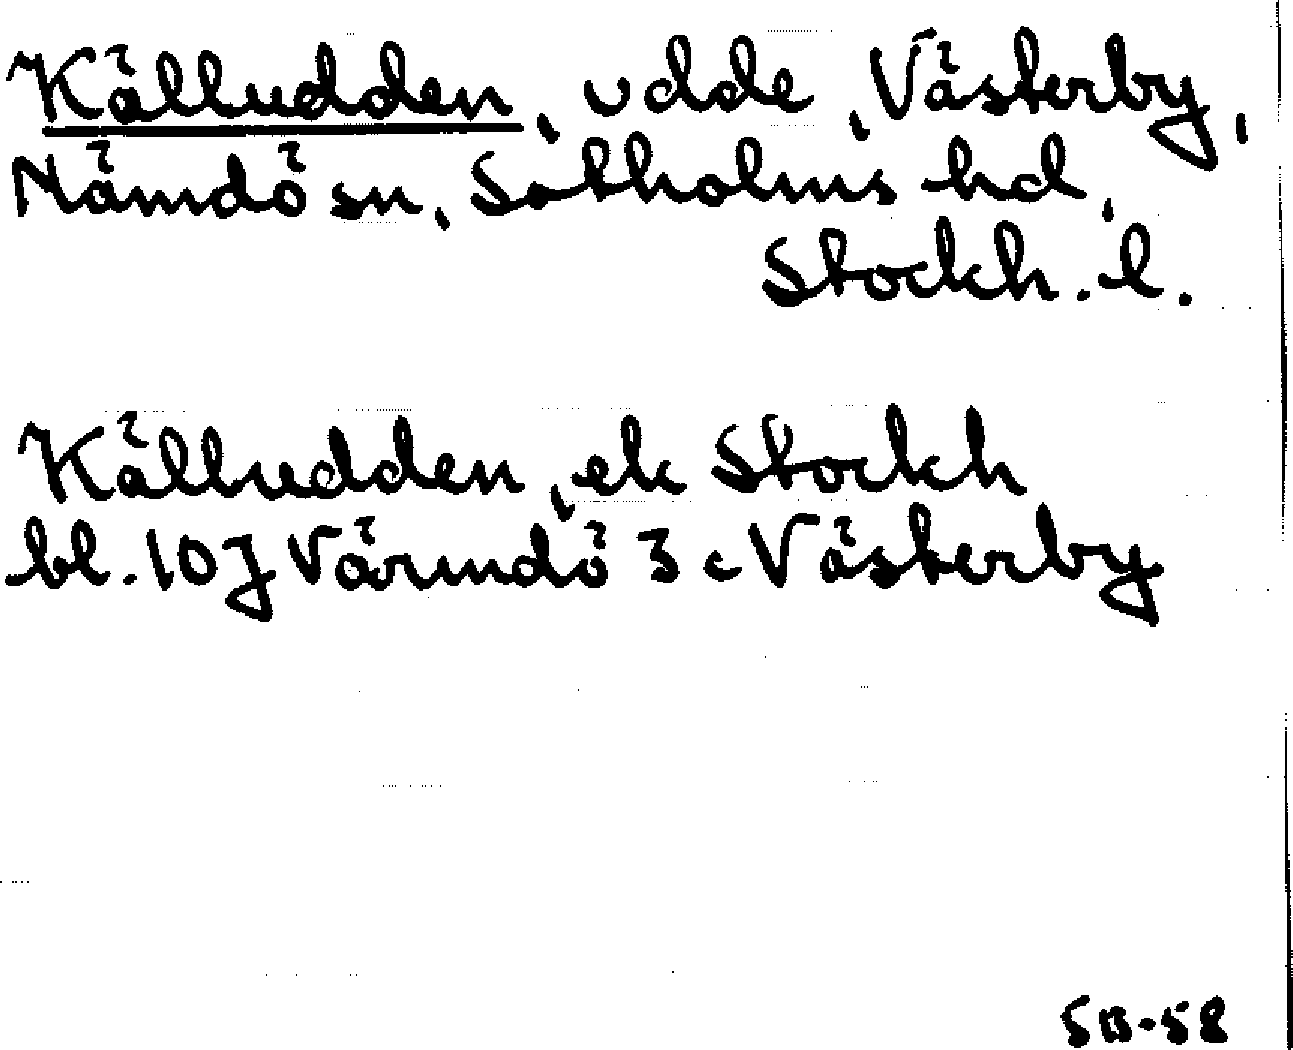 Källudden, udde, Västerby,
Nämdö sn, Sotholms hd,
Stockh. l.
Källudden, ek Stockh
bl. 10J Värmdö 3 c Västerby
SB-58